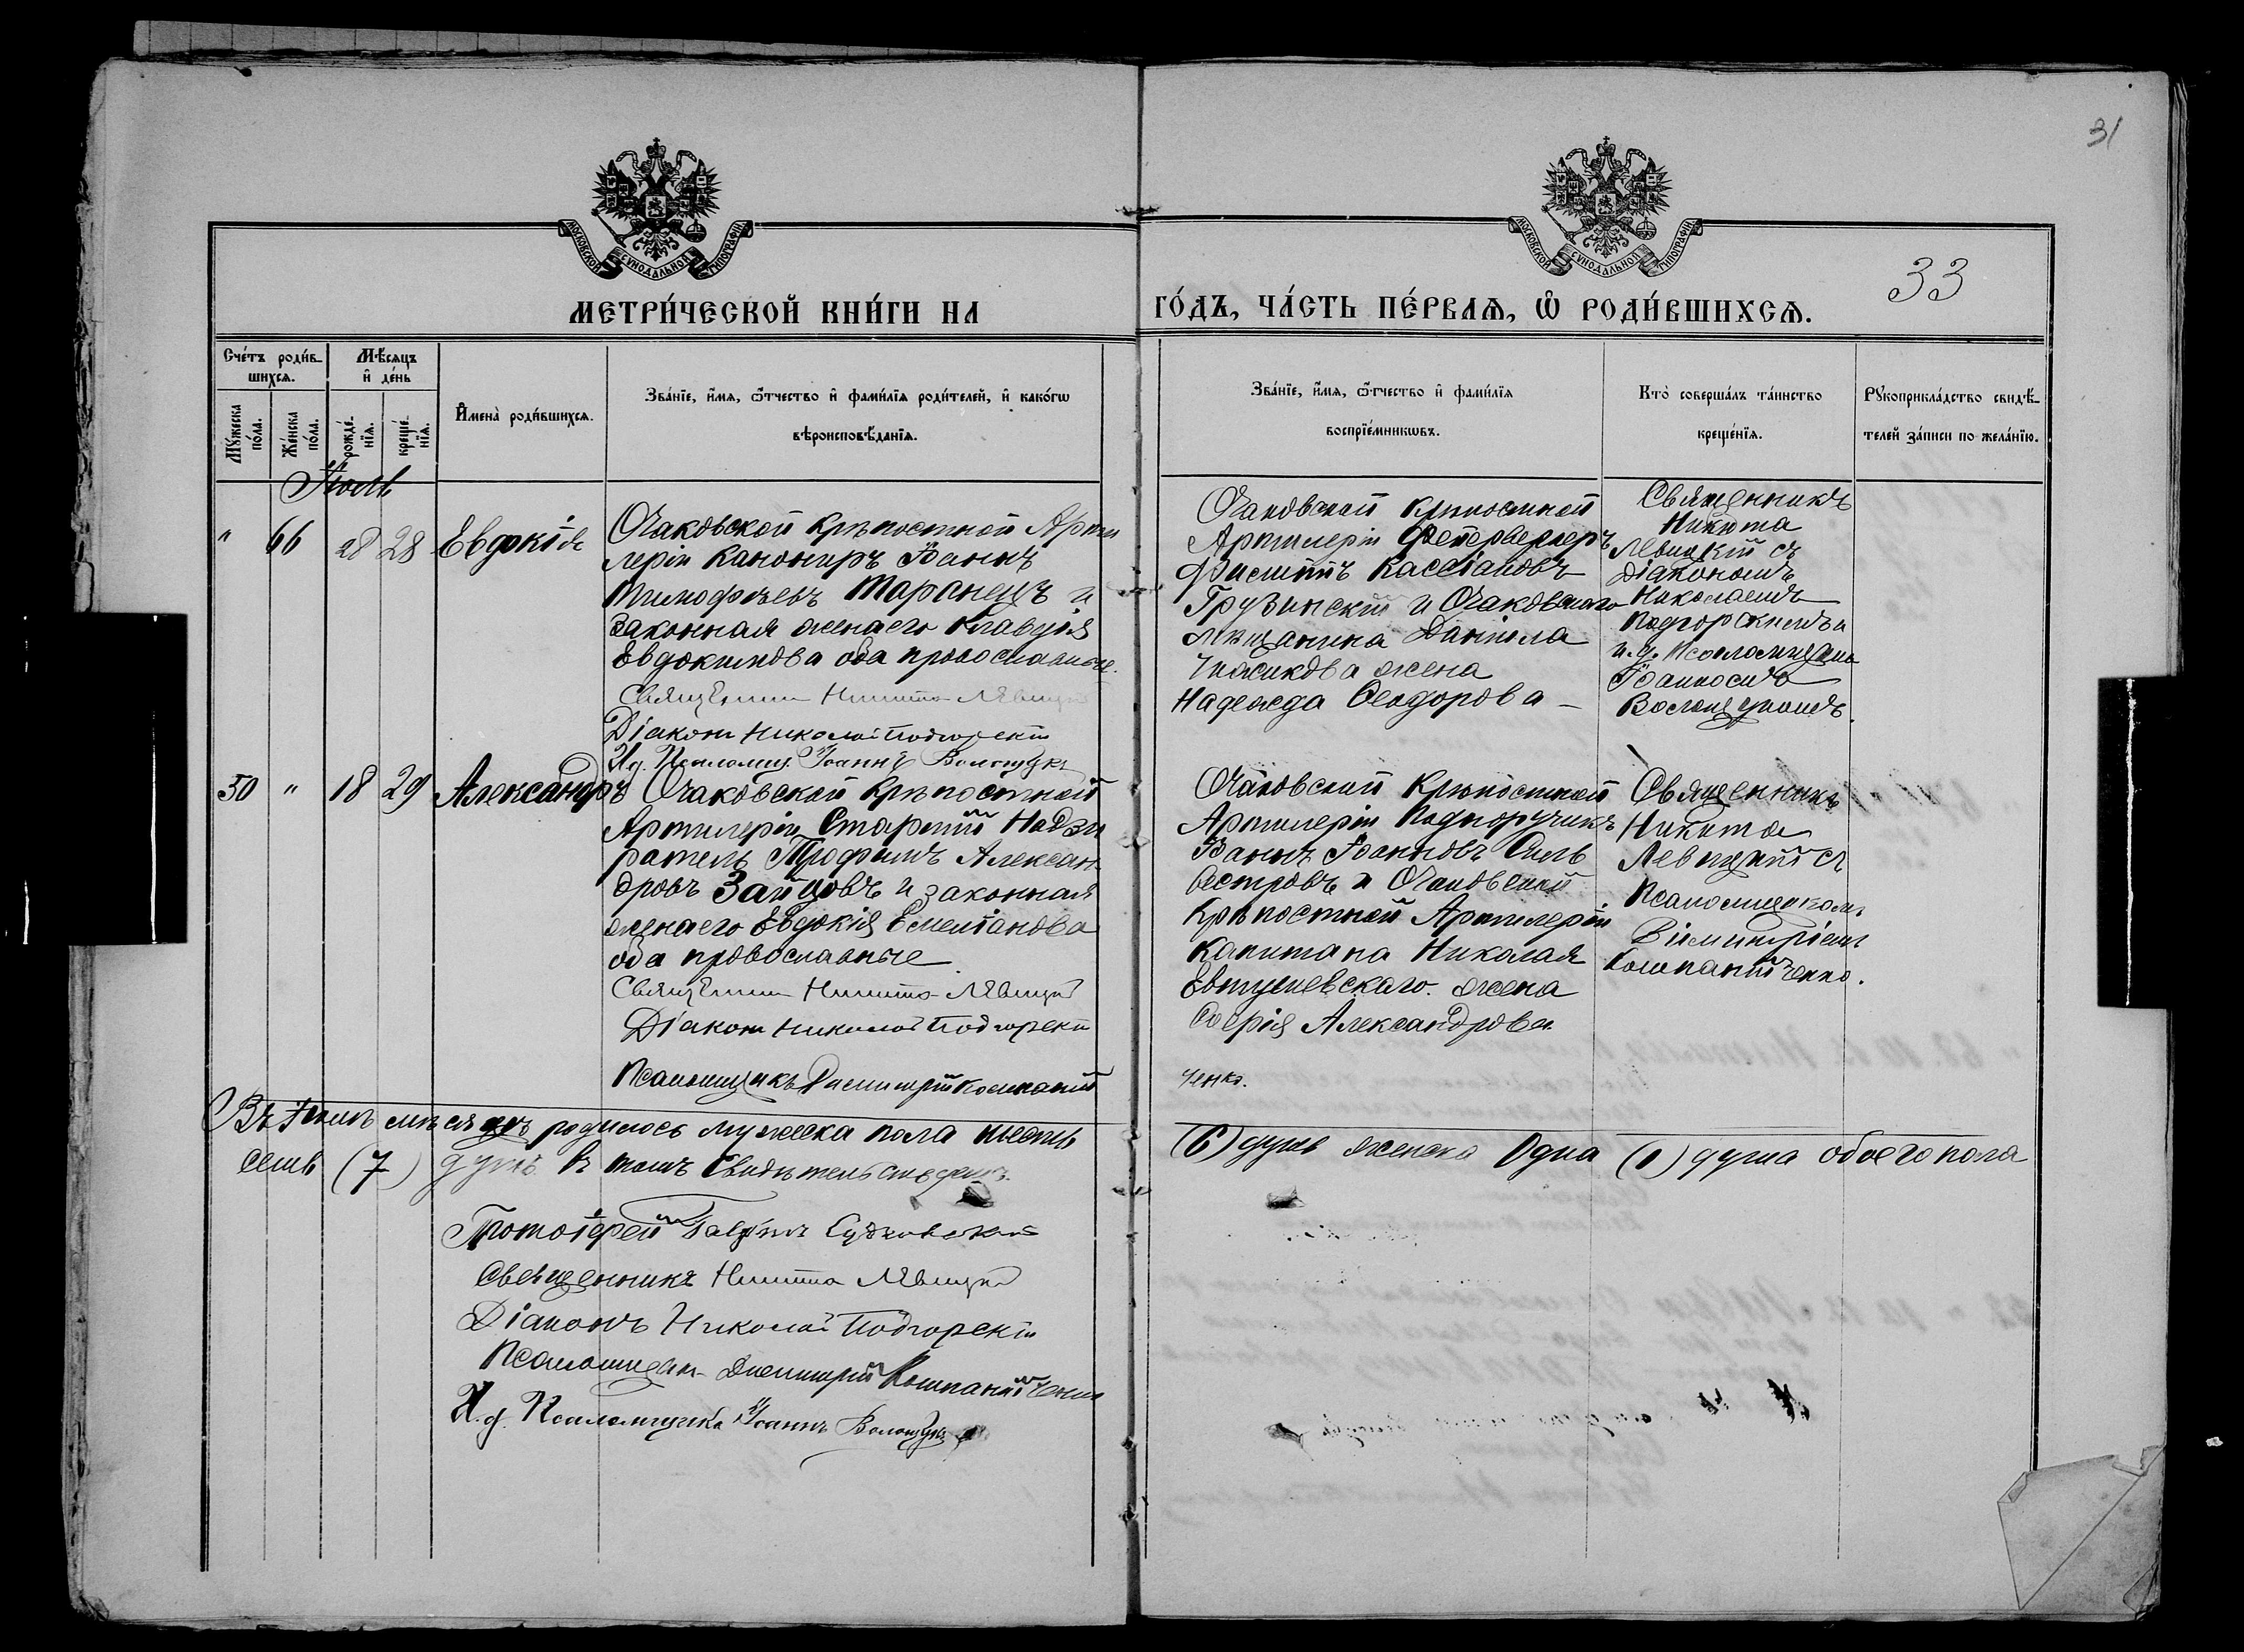 31
МОСКОВСКОЙ СУНОДАЛЬНОЙ ТИПОГРАФІИ
МОСКОВСКОЙ СУНОДАЛЬНОЙ ТИПОГРАФІИ
33
МЕТРИ́ЧЕСКОЙ КНИ́ГИ НА ГО́ДЪ, ЧА́СТЬ ПЕ́РВАѦ, Ѡ҆ РОДИ́ВШИХСѦ.
Сче́тъ роди́в-
шихсѧ.
Мѣ́сѧцъ
и҆ де́нь
Мꙋ́жеска
по́ла.
Же́нска
по́ла.
рожде́-
нїѧ.
креще́-
нїѧ.
И҆мена̀ роди́вшихсѧ.
Зва́нїе, и҆́мѧ, ѻ҆́тчество и҆ фами́лїѧ роди́телей, и҆ како́гѡ
вѣроисповѣ́данїѧ.
Зва́нїе, и҆́мѧ, ѻ҆́тчество и҆ фами́лїѧ
воспрїе́мникѡвъ.
Кто̀ соверша́лъ та́инство
креще́нїѧ.
Рꙋкоприкла́дство свидѣ́-
телей за́писи по жела́нїю.
Іюль
" 66 28 28 Евдокія
Очаковской крѣпостной Арти
леріи канониръ Іоаннъ
Тимофѣевъ Таранецъ и
законная жена его Клавдія
Евдокимова оба православные.
Священникъ Никита Левицкій
Діаконъ Николай Подгорскій
И.д. Псаломщ. Іоаннъ Волощукъ
Очаковской крѣпостной
Артилеріи Фейерверкеръ
Филиппъ Кассіановъ
Грузинскій и Очаковскаго
мѣщанина Даніила
жена
Надежда Ѳеодорова –
Священникъ
Никита
Левицкій съ
Діакономъ
Николаемъ
Подгорскимъ и
и.д. Псаломщика
Іоанномъ
Волощукомъ.
50 " 18 29 Александръ
Очаковской крѣпостной
Артилеріи Старшій Надзи
ратель Трофимъ Алексан-
дровъ Зайцовъ и законная
жена его Евдокія Емеліанова
оба православные
Священникъ Никита Левицкій
Діаконъ Николай Подгорскій
Псаломщикъ Димитрій Компаній
ченко.
Очаковской Крѣпостной
Артилеріи Подпоручикъ
Іоаннъ Іоанновъ Силь
вестровъ и Очаковской
Крѣпостной Артилеріи
Капитана Николая
Евтушевскаго жена
Александрова
Священникъ
Никита
Левицкій съ
Псаломщикомъ
Димитріемъ
Компанійченко.
Въ Іюлѣ мѣсяцѣ родилось мужеска пола шесть (6) душъ женска одна (1) душа обоего пола
семь (7) душъ въ томъ свидѣтельствуемъ.
Протоіерей Гавріилъ Судковскій
Священникъ Никита Левицкій
Діаконъ Николай Подгорскій
Псаломщикъ Димитрій Компанійченко
И.д. Псаломщика Іоаннъ Волощукъ